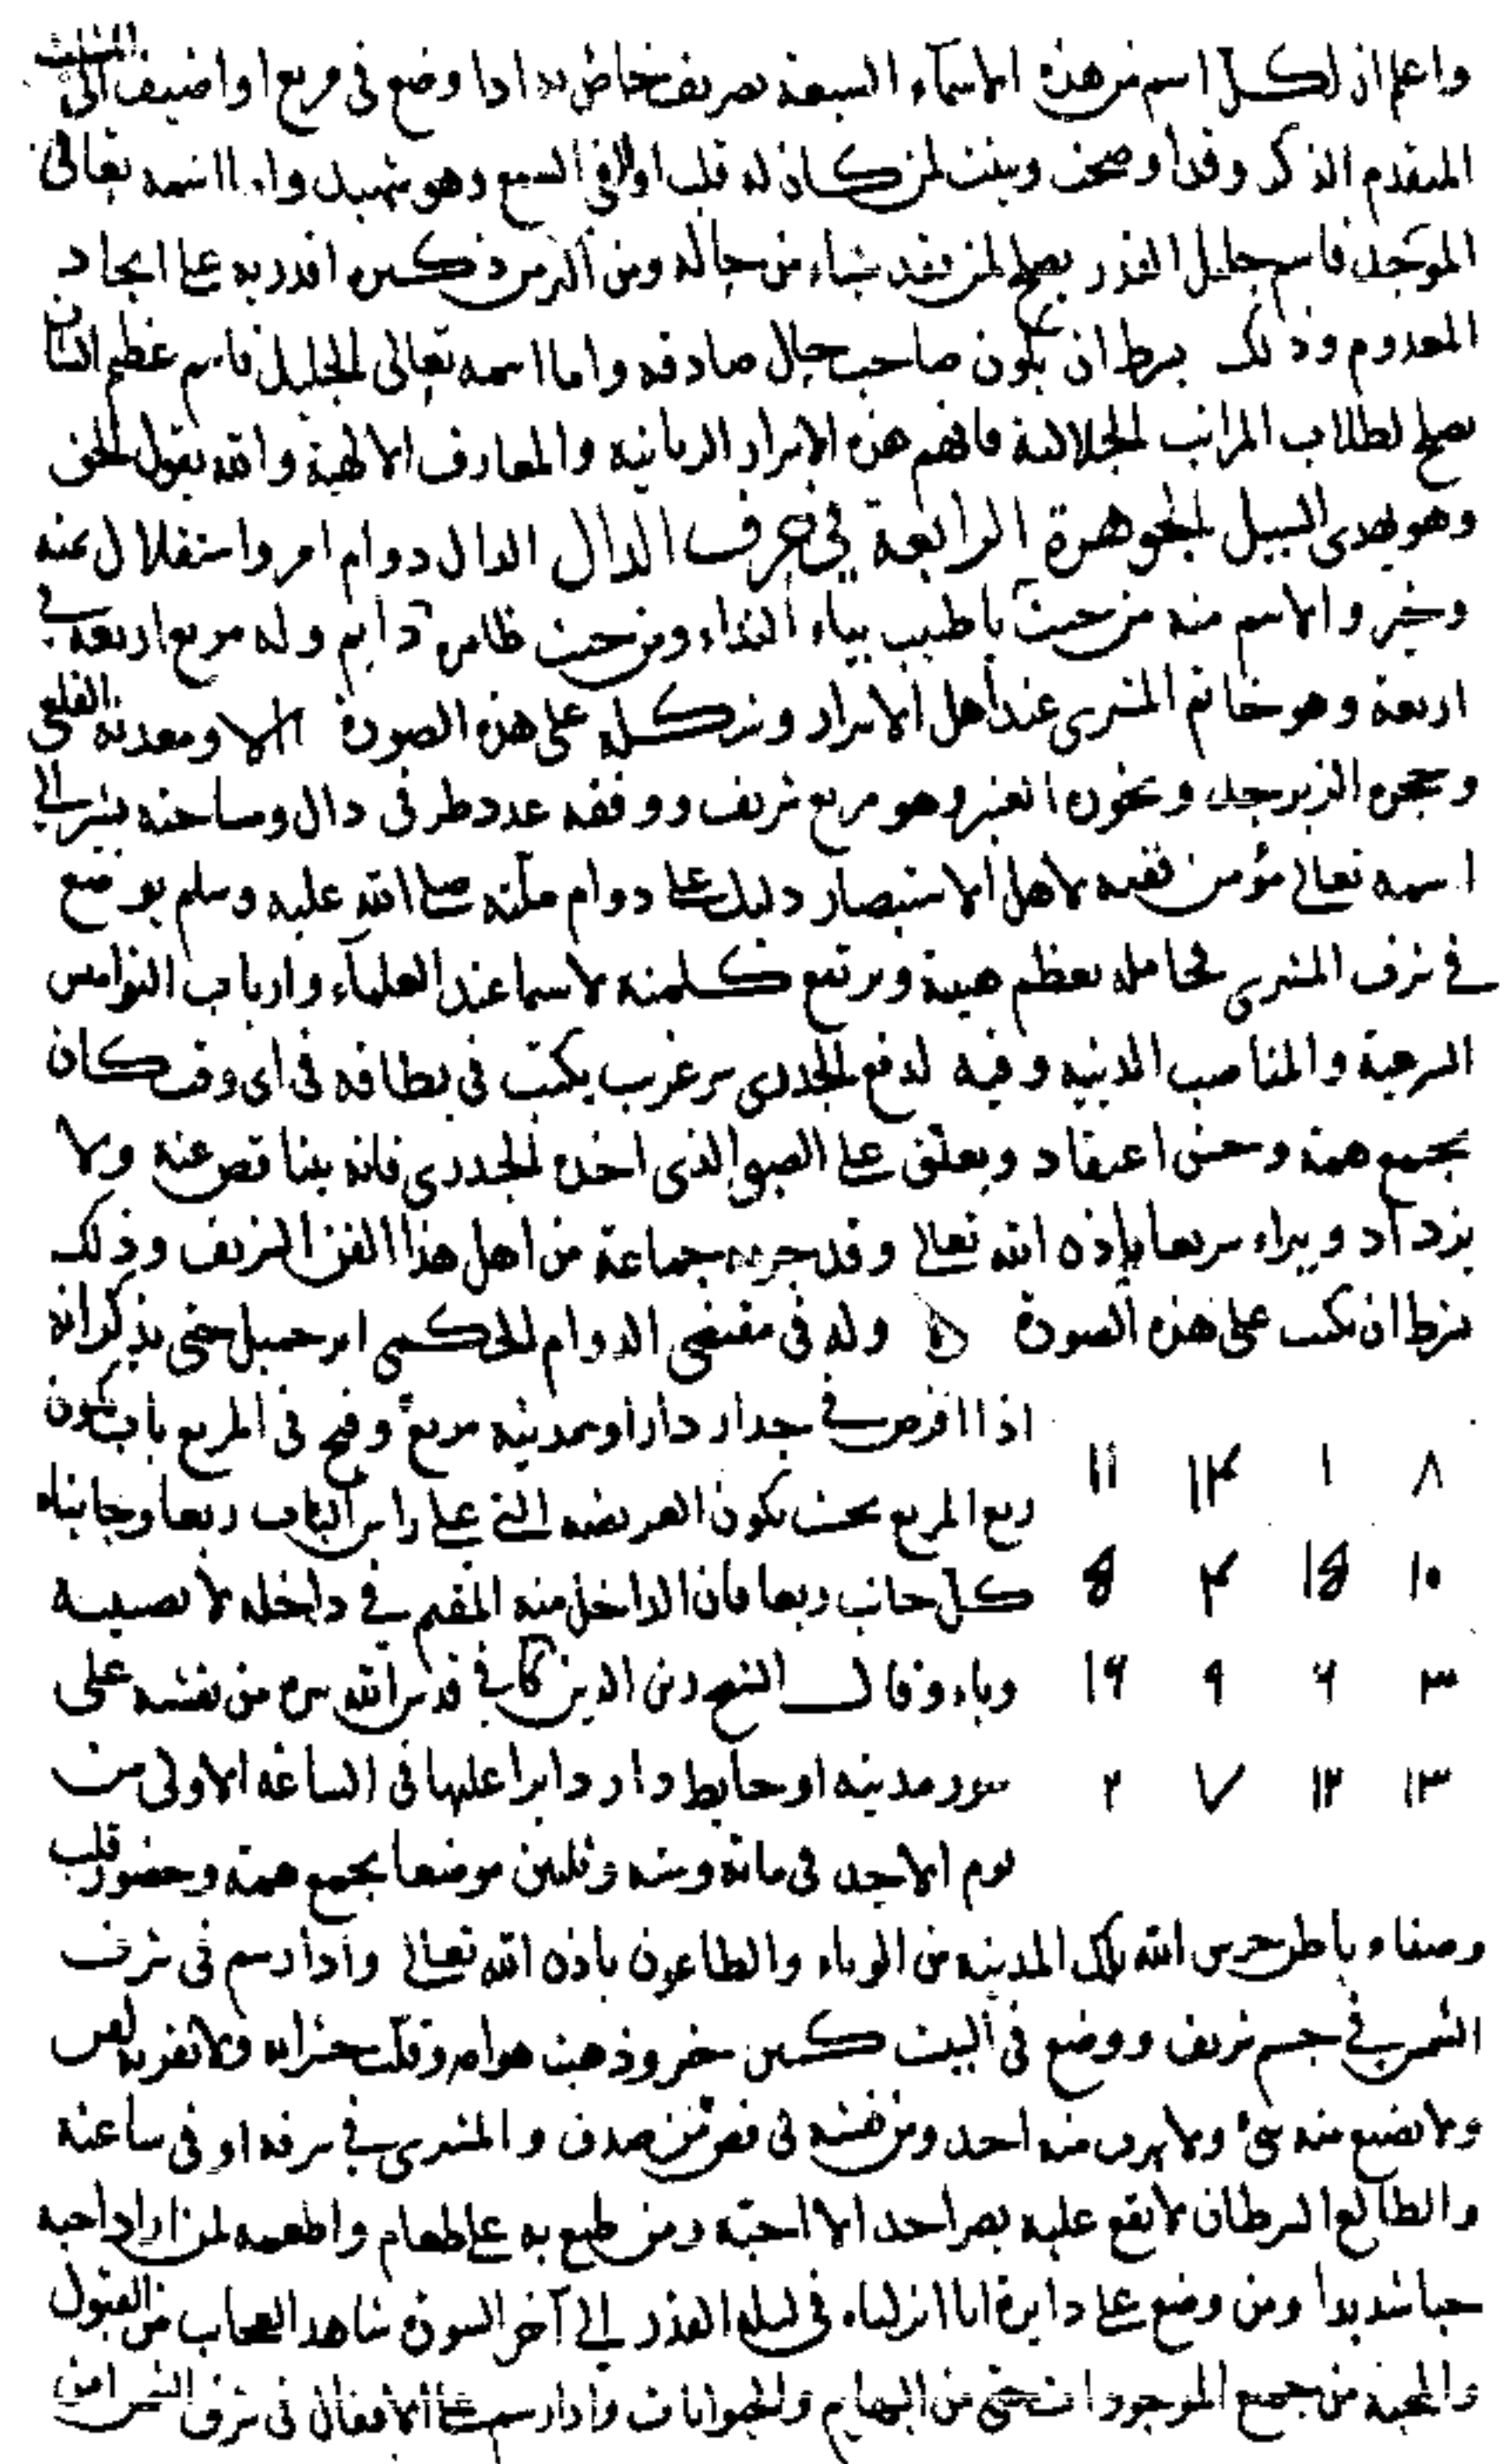 واعلم ان لكل اسم من هذه الاسماء السبعة تصريف خاص به اذا وضع في مربع او اضيف الى المثلث
المتقدم الذكر وقد اوضحت وبينت لمن كان له قلب او القى السمع وهو شهيد واما اسمه تعالى
الموجد فاسم جليل القدر يصلح لمن فقد شياء من حاله ومن اكثر من ذكره اقدر به على ايجاد
المعدوم وذلك بشرط ان يكون صاحب حال صادقه واما اسمه تعالى الجليل فاسم عظيم الشان
يصلح لطلاب المراتب الجلالية فافهم هذه الاسرار الربانيه والمعارف الالهية والله يقول الحق
وهو يهدى السبيل الجوهرة الرابعة في حرف الدال الدال دوام امر واستقلال عنه
وخير والاسم منه من حيث باطنه بياء النداء ومن حيث ظاهره دايم وله مربع اربعة في
اربعة وهو خاتم المشترى عند اهل الاسرار وشكله على هذه الصورة ومعدنه القلعى
وحجره الزبرجد وبخوره العنبر وهو مربع شريف ووفقه عدد طرفى دال ومساحته يشير الى
اسمه تعالى مؤمن ففيه لاهل الاستبصار دليل على دوام ملته صلى الله عليه وسلم يوضع
في شرف المشترى لحامله يعظم هيبة ويرتفع كلمته لاسيما عند العلماء وارباب النواميس
الشرعية والمناصب الدينيه وفيه لدفع الجدرى سر غريب يكتب في بطاقه فى اى وقت كان
بجمع همة وحسن اعتقاد ويعلق على الصبى الذى اخذه الجدرى فانه يتناقص عنه ولا
يزداد ويبراء سريعا باذن الله تعالى وقد جربه جماعة من اهل هذا الفن الشريف وذلك
بشرط ان يكتب على هذه الصورة ولد فى مقتضى الدوام للحكمى امر جميل حتى يذكر انه
اذا افرض في جدار دار او مدينه مربع وفتح فى المربع باب يكون
٨ ١ ١٤ ١١
ربع المربع بحيث يكون العريضه التي على راس الباب ربعا وجانباه
١٠ ١٥ ٤ ٥
كل جانب ربعا فان الداخل منه المقيم في داخله لا يصيبه
٣ ٦ ٩ ١٦
وباء وقال الشيخ زين الدين كافي قدس الله سره من نقشه على
١٣ ١٢ ٧ ٢
سور مدينه او حايط دار دايرا عليها فى الساعة الاولى من
يوم الاحد فى ماتة وستة وثلثين موضعا بجمع همة وحضور قلب
وصفاء باطن حرس الله تلك المدينه من الوباء والطاعون باذن الله تعالى واذا رسم فى شرف
الشمس في جسم شريف ووضع فى البيت كثر خير وذهبت هوامه وقلت حشراته ولا تقربه لص
ولا تضيع منه شئ ولا يسرق منه احد ومن نقشه فى فص من صدف والمشترى في شرفه او فى ساعته
والطالع السرطان لا يقع عليه بصر احد الا احبه ومن طبع به على طعام واطعمه لمن اراد احبه
حبا شديدا ومن وضع على دايرة انا انزلناه فى ليلة القدر إلى آخر السورة شاهد العجاب من القبول
والمحبة من جميع الموجودات حتى من البهايم والحيوانات واذا رسم على الاقفال فى شرف الشمس امن